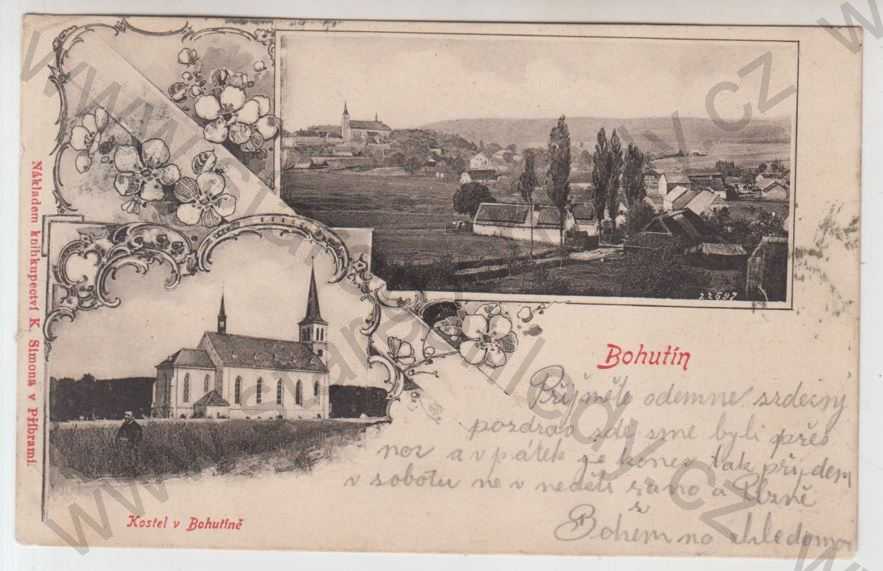 22697
Bohutín
Nákladem knihkupectví K. Simona v Příbrami.
Kostel v Bohutíně
Přijměte odemne srdečný
pozdrav zde sme byli přes
noc a v pátek je konec tak přijdem
v sobotu ne v neděli rano a Plzně
S
Bohem na shledanou
www.starepohledy.cz